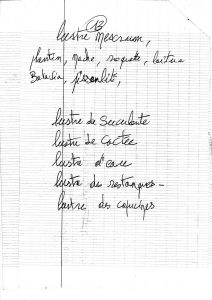 13
lustre Mescrum,
plantin, mache, roquette, laitue
Batavia, pissenlit,
lustre de Succulente
lustre de Cactée
lustre d'eau
lustre des restanques -
lustre des capucines